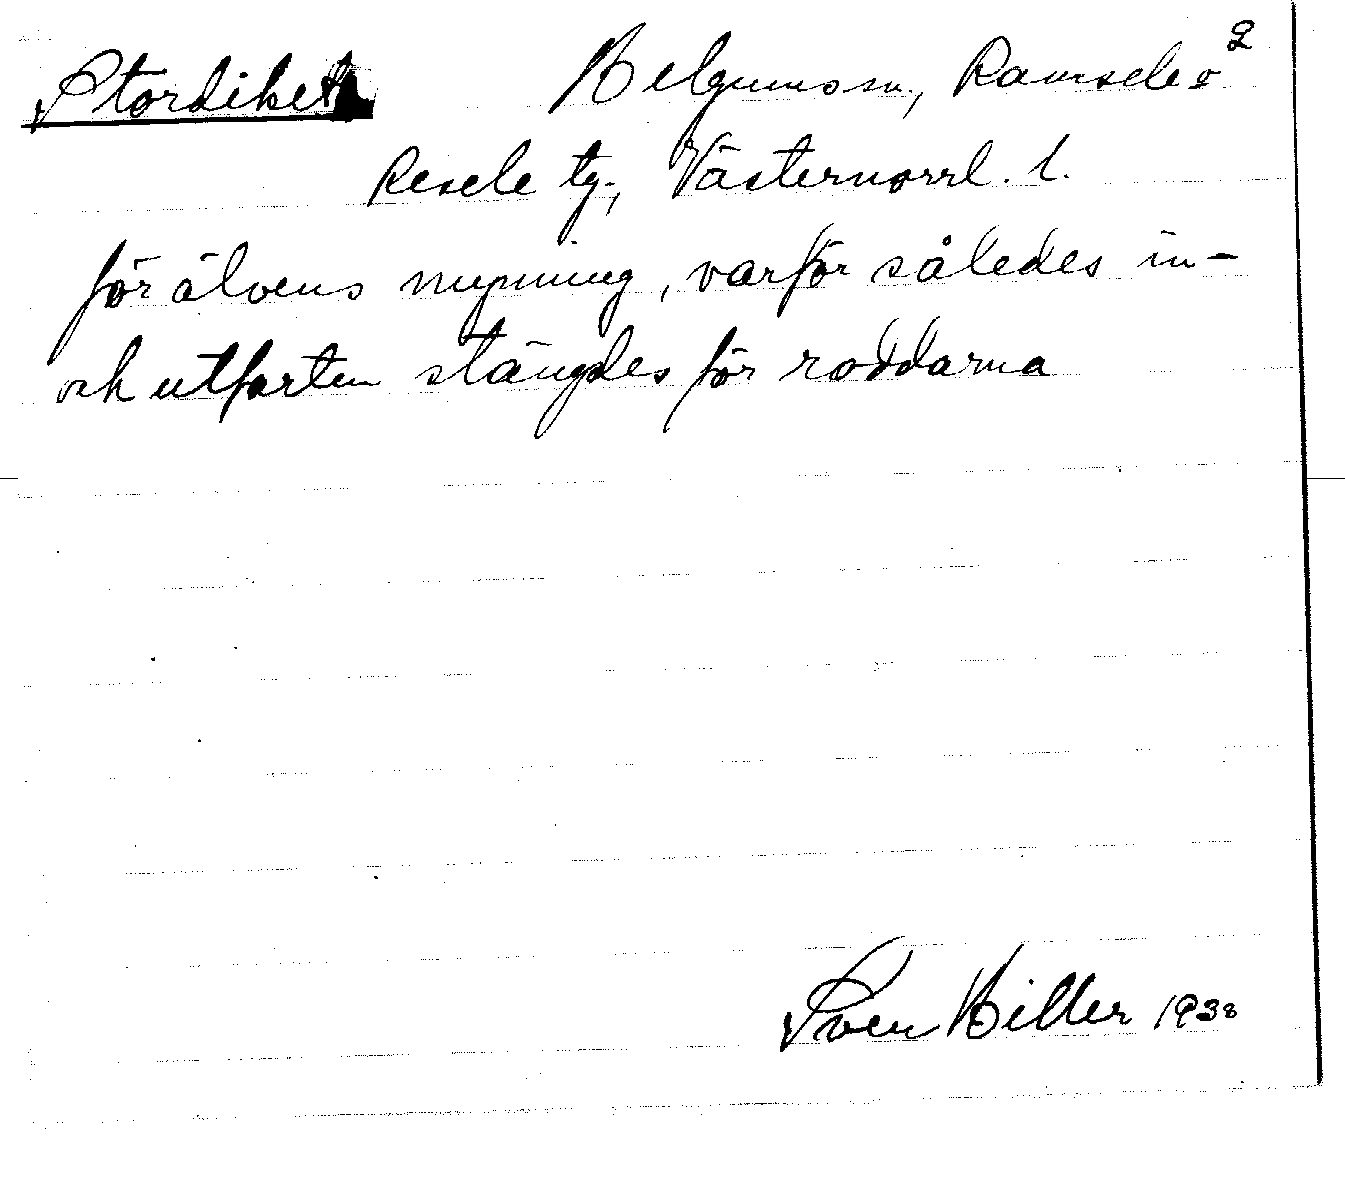 Stordiket Helgums sn, Ramsele o 2
Resele tg., Västernorrl. l.
för älvens mynning, varför således in-
och utfarten stängdes för roddarna
Sven Hiller 1938